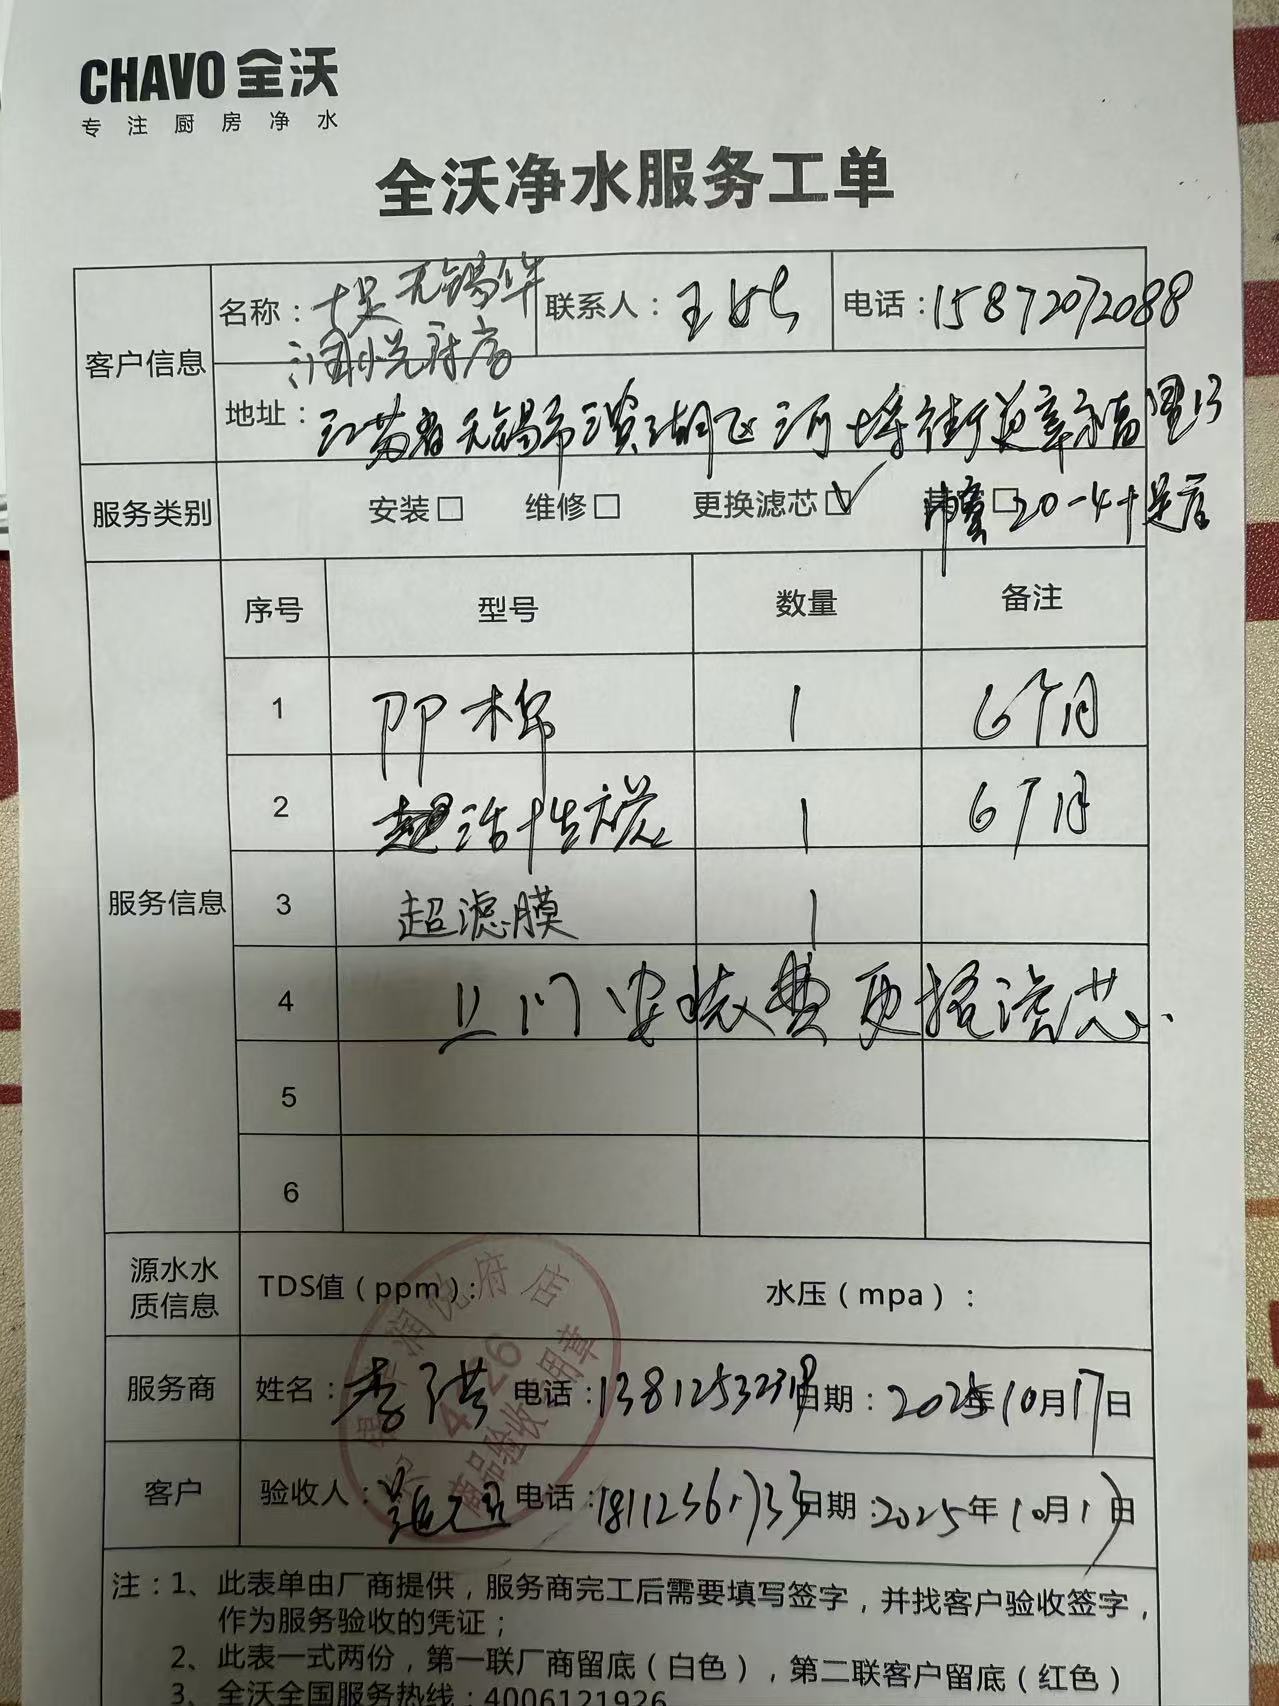 CHAVO 全沃
专注厨房净水
全沃净水服务工单
客户信息
名称：十足无锡华
润悦府店
联系人：王
电话：15872072088
地址：江苏省无锡市滨湖区河埒街道幸福里13
20-4十足店
服务类别 安装□ 维修□ 更换滤芯☑
服务信息
序号 型号 数量 备注
1 PP棉 1 6个月
2 超活性炭 1 6个月
3 超滤膜 1
4 上门安装费更换滤芯.
5
6
源水水质信息 TDS值（ppm）： 水压（mpa）：
服务商 姓名：李 洪 电话： 日期：2025年10月17日
客户 验收人： 电话： 日期：2025年10月17日
润悦府店
4426
商品验收专用章
注：1、此表单由厂商提供，服务商完工后需要填写签字，并找客户验收签字，
作为服务验收的凭证；
2、此表一式两份，第一联厂商留底（白色），第二联客户留底（红色）
3、全沃全国服务热线：4006121926